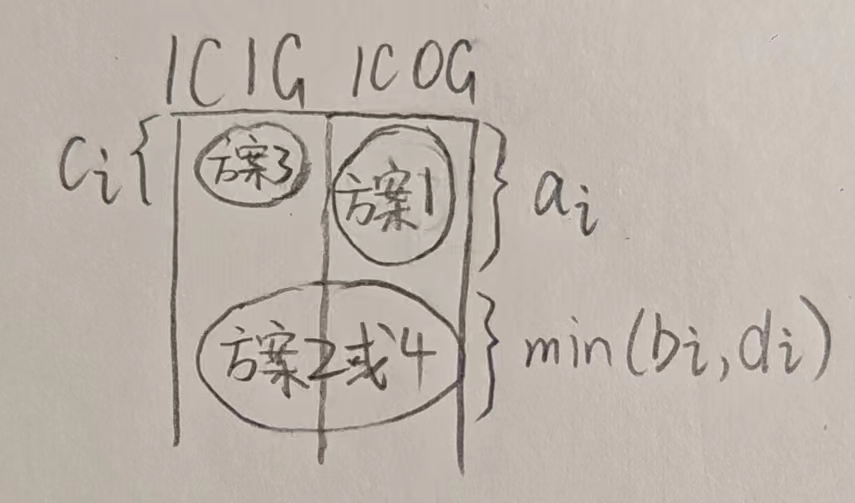 1C1G 1C0G
ci { 方案3 方案1 } ai
方案2或4 } min(bi,di)